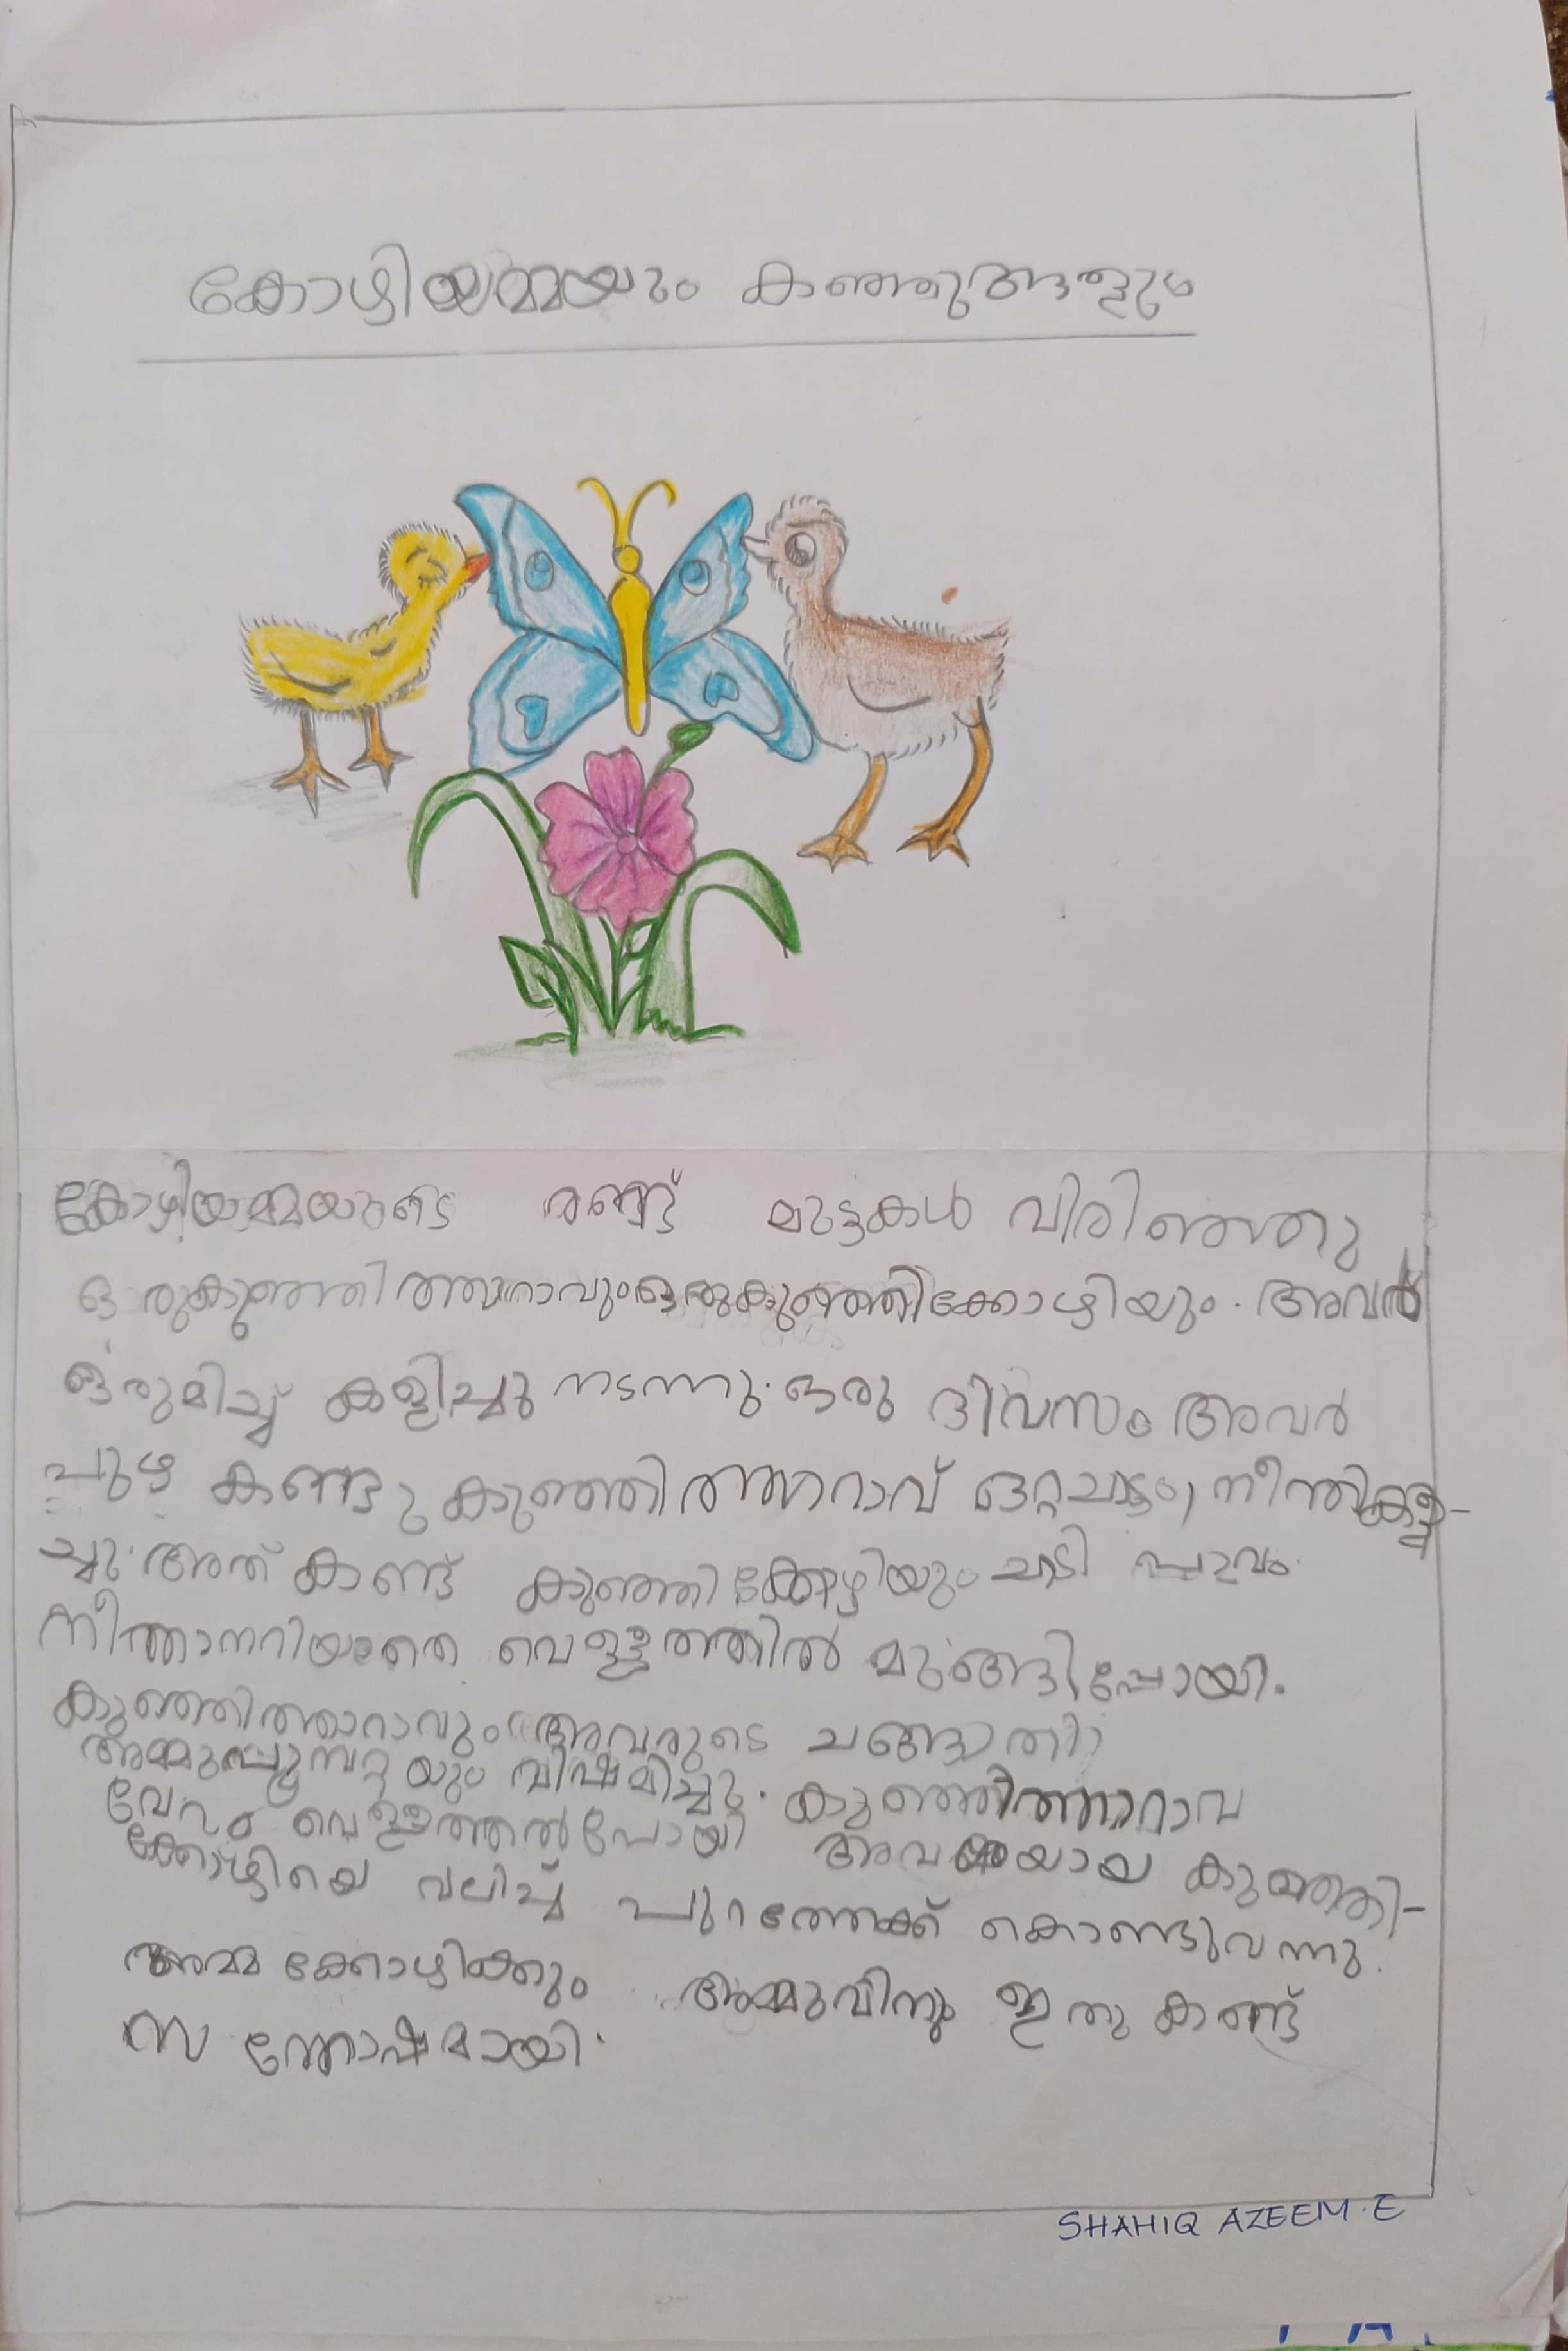 കോഴിയമ്മയും കുഞ്ഞുങ്ങളും
കോഴിയമ്മയുടെ രണ്ട് മുട്ടകൾ വിരിഞ്ഞു
ഒരുകുഞ്ഞിത്താറാവും ഒരുകുഞ്ഞിക്കോഴിയും. അവർ
ഒരുമിച്ച് കളിച്ചു നടന്നു. ഒരു ദിവസം അവർ
പുഴ കണ്ടു കുഞ്ഞിത്താറാവ് ഒറ്റചാട്ടം, നീന്തികളി-
ച്ചു. അത് കണ്ട് കുഞ്ഞിക്കോഴിയും ചാടി പാവം
നീന്താനറിയാതെ വെള്ളത്തിൽ മുങ്ങിപ്പോയി.
കുഞ്ഞിത്താറാവും അവരുടെ ചങ്ങാതി
അമ്മുപ്പൂമ്പാറ്റയും വിഷമിച്ചു. കുഞ്ഞിത്താറാവ
വേഗം വെള്ളത്തിൽപോയി അവശയായ കുഞ്ഞി-
ക്കോഴിയെ വലിച്ച് പുറത്തേക്ക് കൊണ്ടുവന്നു.
അമ്മക്കോഴിക്കും അമ്മുവിനും ഇതു കണ്ട്
സന്തോഷമായി.
SHAHIQ AZEEM.E